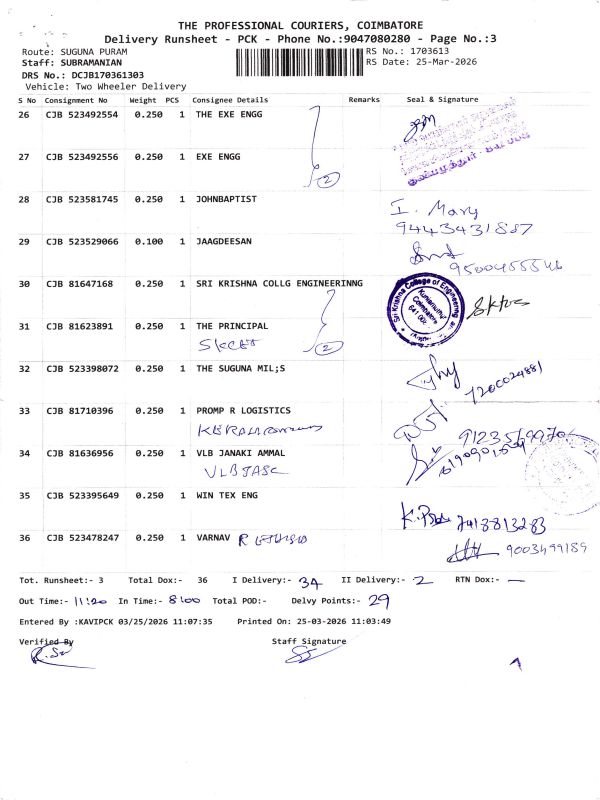 THE PROFESSIONAL COURIERS, COIMBATORE
Delivery Runsheet - PCK - Phone No.:9047080280 - Page No.:3
Route: SUGUNA PURAM
RS No.: 1703613
Staff: SUBRAMANIAN
RS Date: 25-Mar-2026
DRS No.: DCJB170361303
Vehicle: Two Wheeler Delivery
S No Consignment No Weight PCS Consignee Details Remarks Seal & Signature
26 CJB 523492554 0.250 1 THE EXE ENGG
27 CJB 523492556 0.250 1 EXE ENGG
2
28 CJB 523581745 0.250 1 JOHNBAPTIST
I. Mary
9443431887
29 CJB 523529066 0.100 1 JAAGDEESAN
9500455546
30 CJB 81647168 0.250 1 SRI KRISHNA COLLG ENGINEERINNG
Sri Krishna College of Engineering
Kuniamuthur
Coimbatore
31 CJB 81623891 0.250 1 THE PRINCIPAL
SKCET
2
32 CJB 523398072 0.250 1 THE SUGUNA MIL;S
7200024881
33 CJB 81710396 0.250 1 PROMP R LOGISTICS
34 CJB 81636956 0.250 1 VLB JANAKI AMMAL
VLBJASC
35 CJB 523395649 0.250 1 WIN TEX ENG
7418813283
36 CJB 523478247 0.250 1 VARNAV
9003499189
Tot. Runsheet:- 3 Total Dox:- 36 I Delivery:- 34 II Delivery:- 2 RTN Dox:- —
Out Time:- 11:20 In Time:- 8:00 Total POD:- Delvy Points:- 29
Entered By :KAVIPCK 03/25/2026 11:07:35 Printed On: 25-03-2026 11:03:49
Verified By Staff Signature